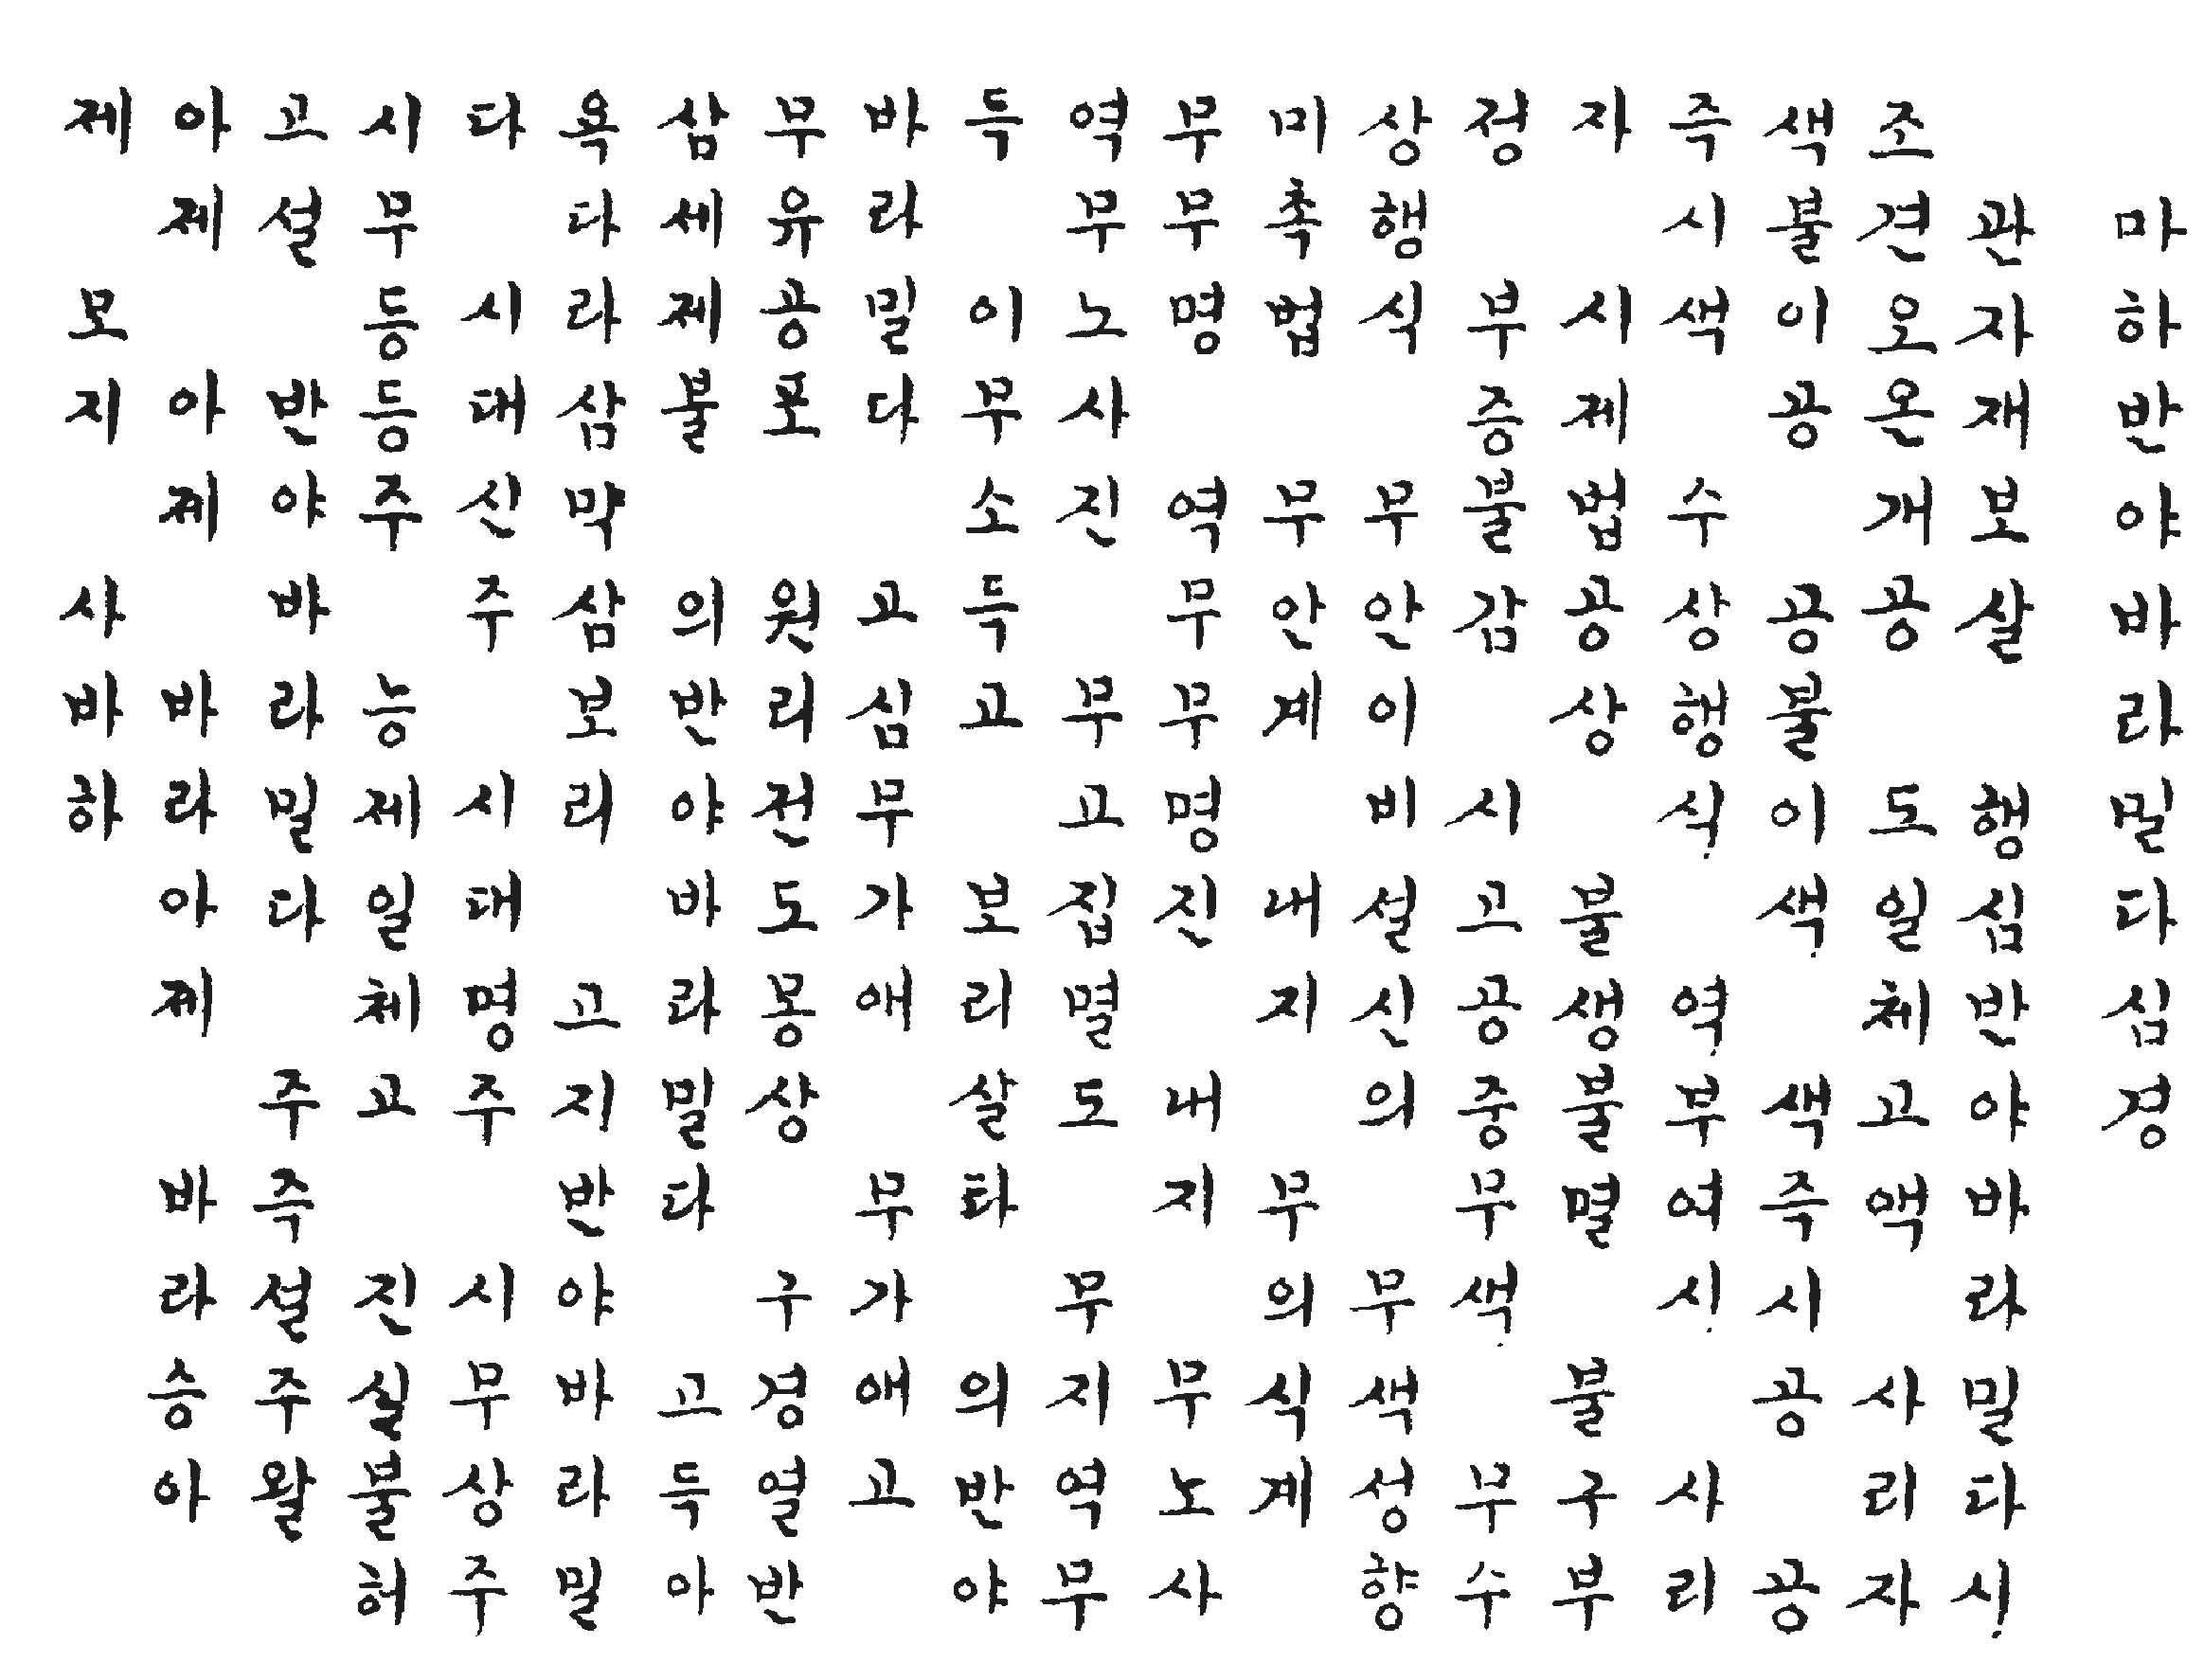 마하반야바라밀다심경
관자재보살 행심반야바라밀다시
조견오온개공 도일체고액 사리자
색불이공 공불이색 색즉시공 공
즉시색 수상행식 역부여시 사리
자 시제법공상 불생불멸 불구부
정 부증불감 시고공중무색 무수
상행식 무안이비설신의 무색성향
미촉법 무안계 내지 무의식계
무무명 역무무명진 내지 무노사
역무노사진 무고집멸도 무지역무
득 이무소득고 보리살타 의반야
바라밀다 고심무가애 무가애고
무유공포 원리전도몽상 구경열반
삼세제불 의반야바라밀다 고득아
욕다라삼막삼보리 고지반야바라밀
다 시대신주 시대명주 시무상주
시무등등주 능제일체고 진실불허
고설 반야바라밀다 주즉설주왈
아제 아제 바라아제 바라승아
제 모지 사바하